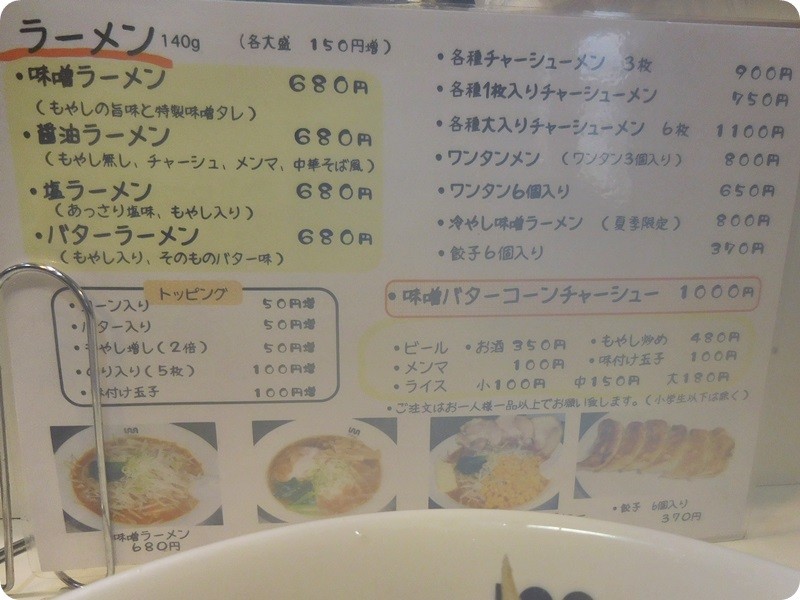 ラーメン 140g （各大盛 150円増）
・味噌ラーメン 680円
（もやしの旨味と特製味噌タレ）
・醤油ラーメン 680円
（もやし無し、チャーシュ、メンマ、中華そば風）
・塩ラーメン 680円
（あっさり塩味、もやし入り）
・バターラーメン 680円
（もやし入り、そのものバター味）
・各種チャーシューメン 3枚 900円
・各種1枚入りチャーシューメン 750円
・各種大入りチャーシューメン 6枚 1100円
・ワンタンメン （ワンタン3個入り） 800円
・ワンタン6個入り 650円
・冷やし味噌ラーメン （夏季限定） 800円
・餃子6個入り 370円
トッピング
ーン入り 50円増
・バター入り 50円増
やし増し（2倍） 50円増
り入り（5枚） 100円増
味付け玉子 100円増
・味噌バターコーンチャーシュー 1000円
・ビール ・お酒 350円 ・もやし炒め 480円
・メンマ 100円 ・味付け玉子 100円
・ライス 小100円 中150円 大180円
・ご注文はお一人様一品以上でお願い致します。（小学生以下は除く）
味噌ラーメン
680円
・餃子 6個入り
370円